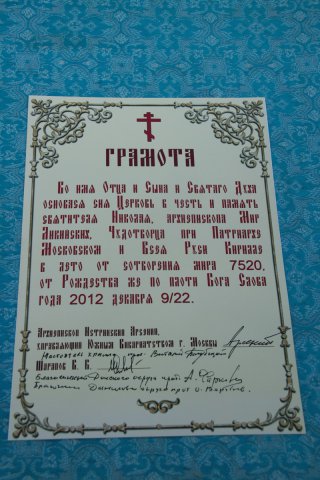 ГРАМОТА
Во имя Отца и Сына и Святаго Духа
основася сия Церковь в честь и память
святителя Николая, архиепископа Мир
Ликийских, Чудотворца при Патриархе
Московском и Всея Руси Кирилле
в лето от сотворения мира 7520,
от Рождества же по плоти Бога Слова
года 2012 декабря 9/22.
Архиепископ Истринский Арсений,
управляющий Южным Викариатством г. Москвы
Шапанов В. В.